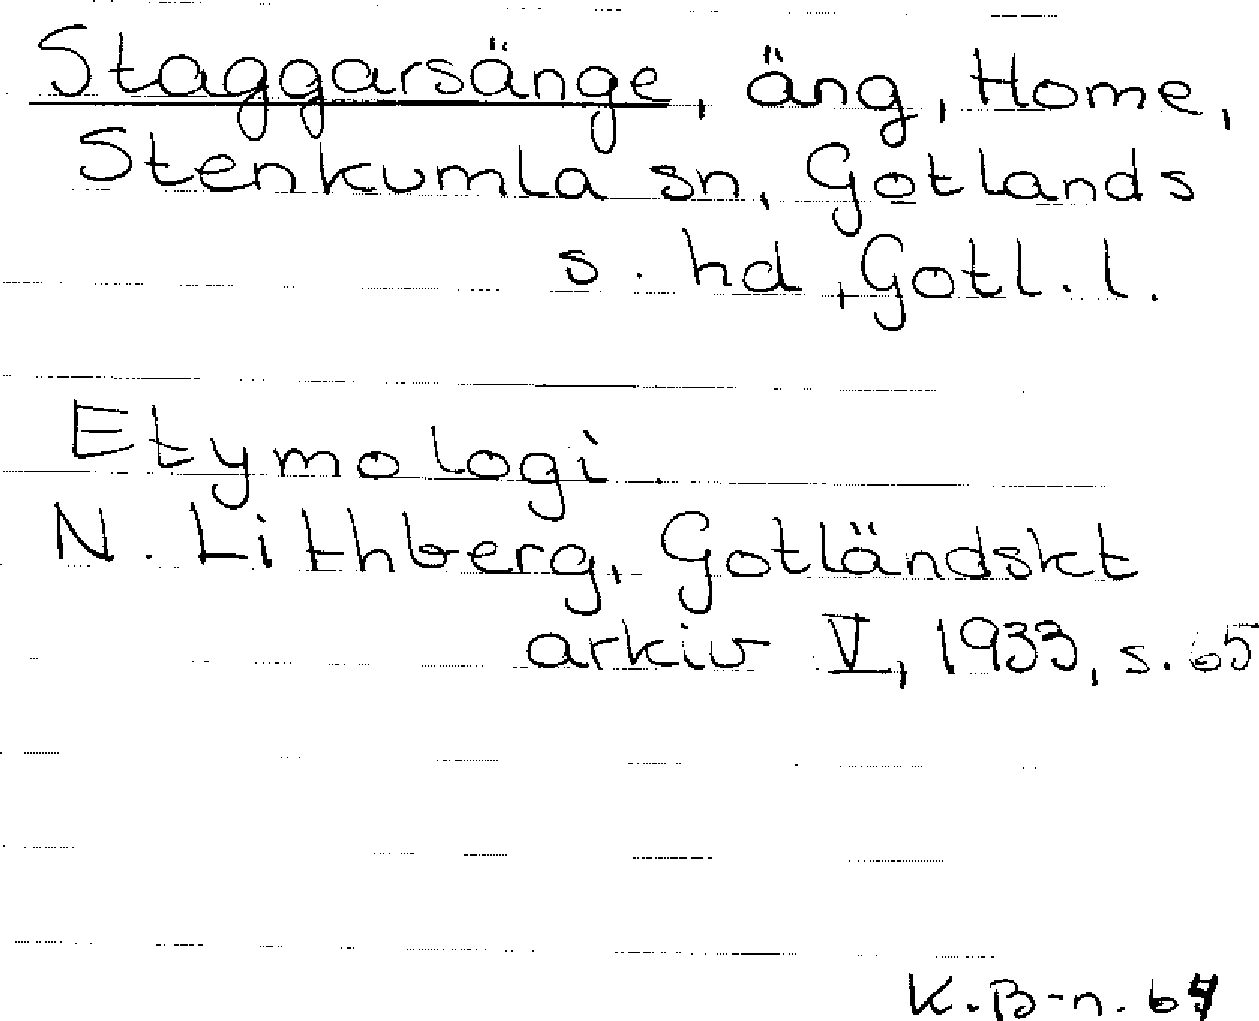 Staggarsänge, äng, Home,
Stenkumla sn, Gotlands
s. hd, Gotl. l.
Etymologi
N. Lithberg, Gotländskt
arkiv V, 1933, s. 65
K. B-n.